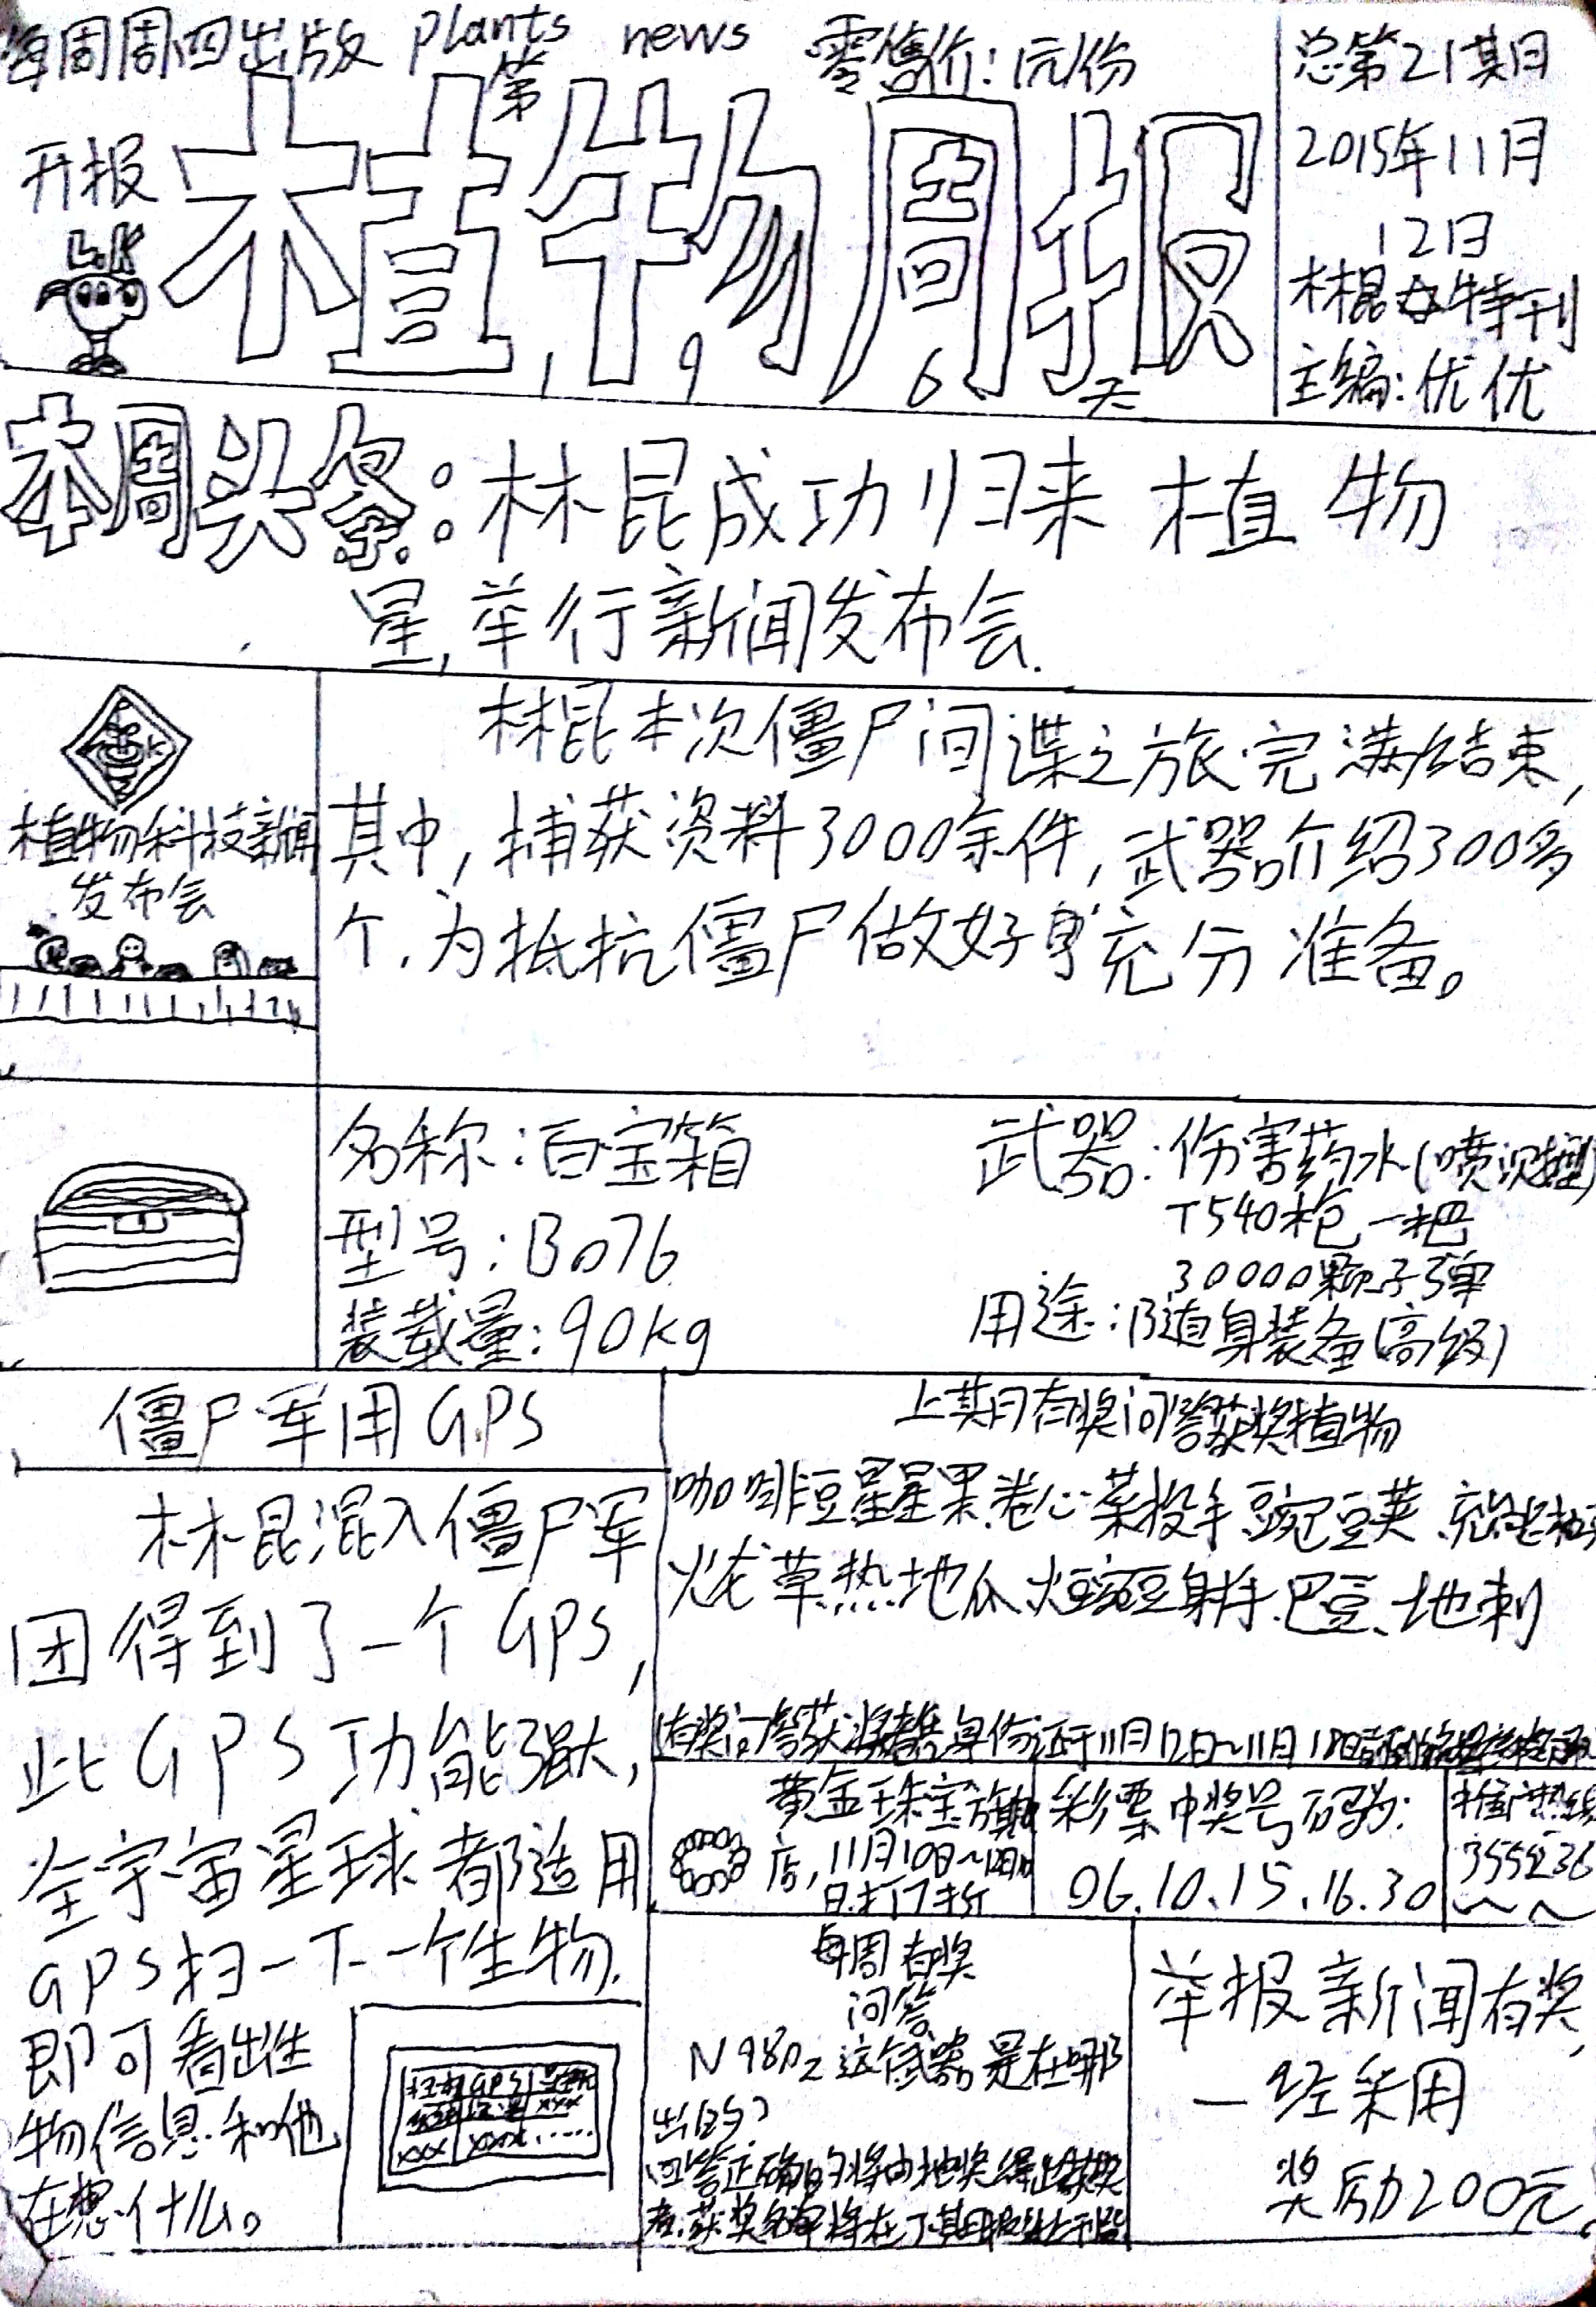 每周周四出版 plants news 零售价:1元/份
开报第196天
植物周报
L.K
总第21期
2015年11月
12日
林昆特刊
主编:优优
本周头条:林昆成功归来植物
星,举行新闻发布会.
植物科技新闻
发布会
林昆本次僵尸间谍之旅完满结束,
其中,捕获资料3000余件,武器介绍300多
个.为抵抗僵尸做好充分准备。
名称:百宝箱
型号:B076
装载量:90kg
武器:伤害药水(喷泉型)
T540枪一把
30000颗子弹
用途:随身装备(高级)
僵尸军用GPS
林昆混入僵尸军
团得到了一个GPS,
此GPS功能强大,
全宇宙星球都适用
GPS扫一下一个生物.
即可看出生
物信息和他
在想什么。
上期有奖问答获奖植物
咖啡豆星星果卷心菜投手豌豆荚
火龙草热地瓜火豌豆射手.巴豆、地刺
黄金珠宝旗舰
店,11月10日~
日.打7折
彩票中奖号码为:
06.10.15.16.30
推广热线
3555236
每周有奖
问答
N98D2这件武器是在哪
出的?
回答正确的将由抽奖得出获奖
者.获奖名单将在下期报纸刊登
举报新闻有奖,
一经采用
奖励200元。